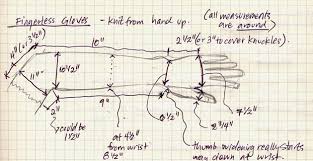 Fingerless Gloves - knit from hand up.
(all measurements
are around)
4" (or 3½")
10"
2½" (or 3" to cover knuckles)
11"
10½"
2"
could be
1½"
9"
at 4½"
from wrist
8½"
6½"
7½"
8¾"
thumb-widening really starts
way down at wrist.